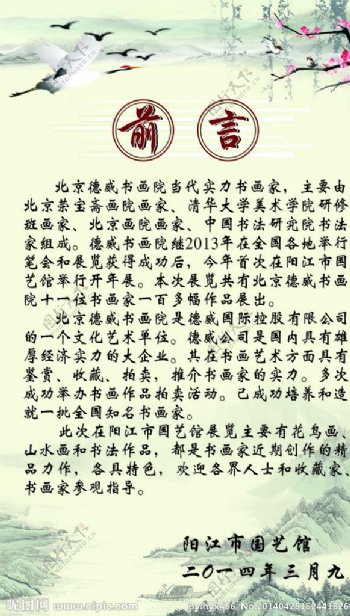 前言
北京德威书画院当代实力书画家，主要由
北京荣宝斋画院画家、清华大学美术学院研修
班画家、北京画院画家、中国书法研究院书法
家组成。德威书画院继2013年在全国各地举行
笔会和展览获得成功后，今年首次在阳江市国
艺馆举行开年展。本次展览共有北京德威书画
院十一位书画家一百多幅作品展出。
北京德威书画院是德威国际控股有限公司
的一个文化艺术单位。德威公司是国内具有雄
厚经济实力的大企业。其在书画艺术方面具有
鉴赏、收藏、拍卖，推介书画家的实力。多次
成功举办书画作品拍卖活动。已成功培养和造
就一批全国知名书画家。
此次在阳江市国艺馆展览主要有花鸟画、
山水画和书法作品，都是书画家近期创作的精
品力作，各具特色，欢迎各界人士和收藏家、
书画家参观指导。
阳江市国艺馆
二〇一四年三月九
昵图网 www.nipic.com